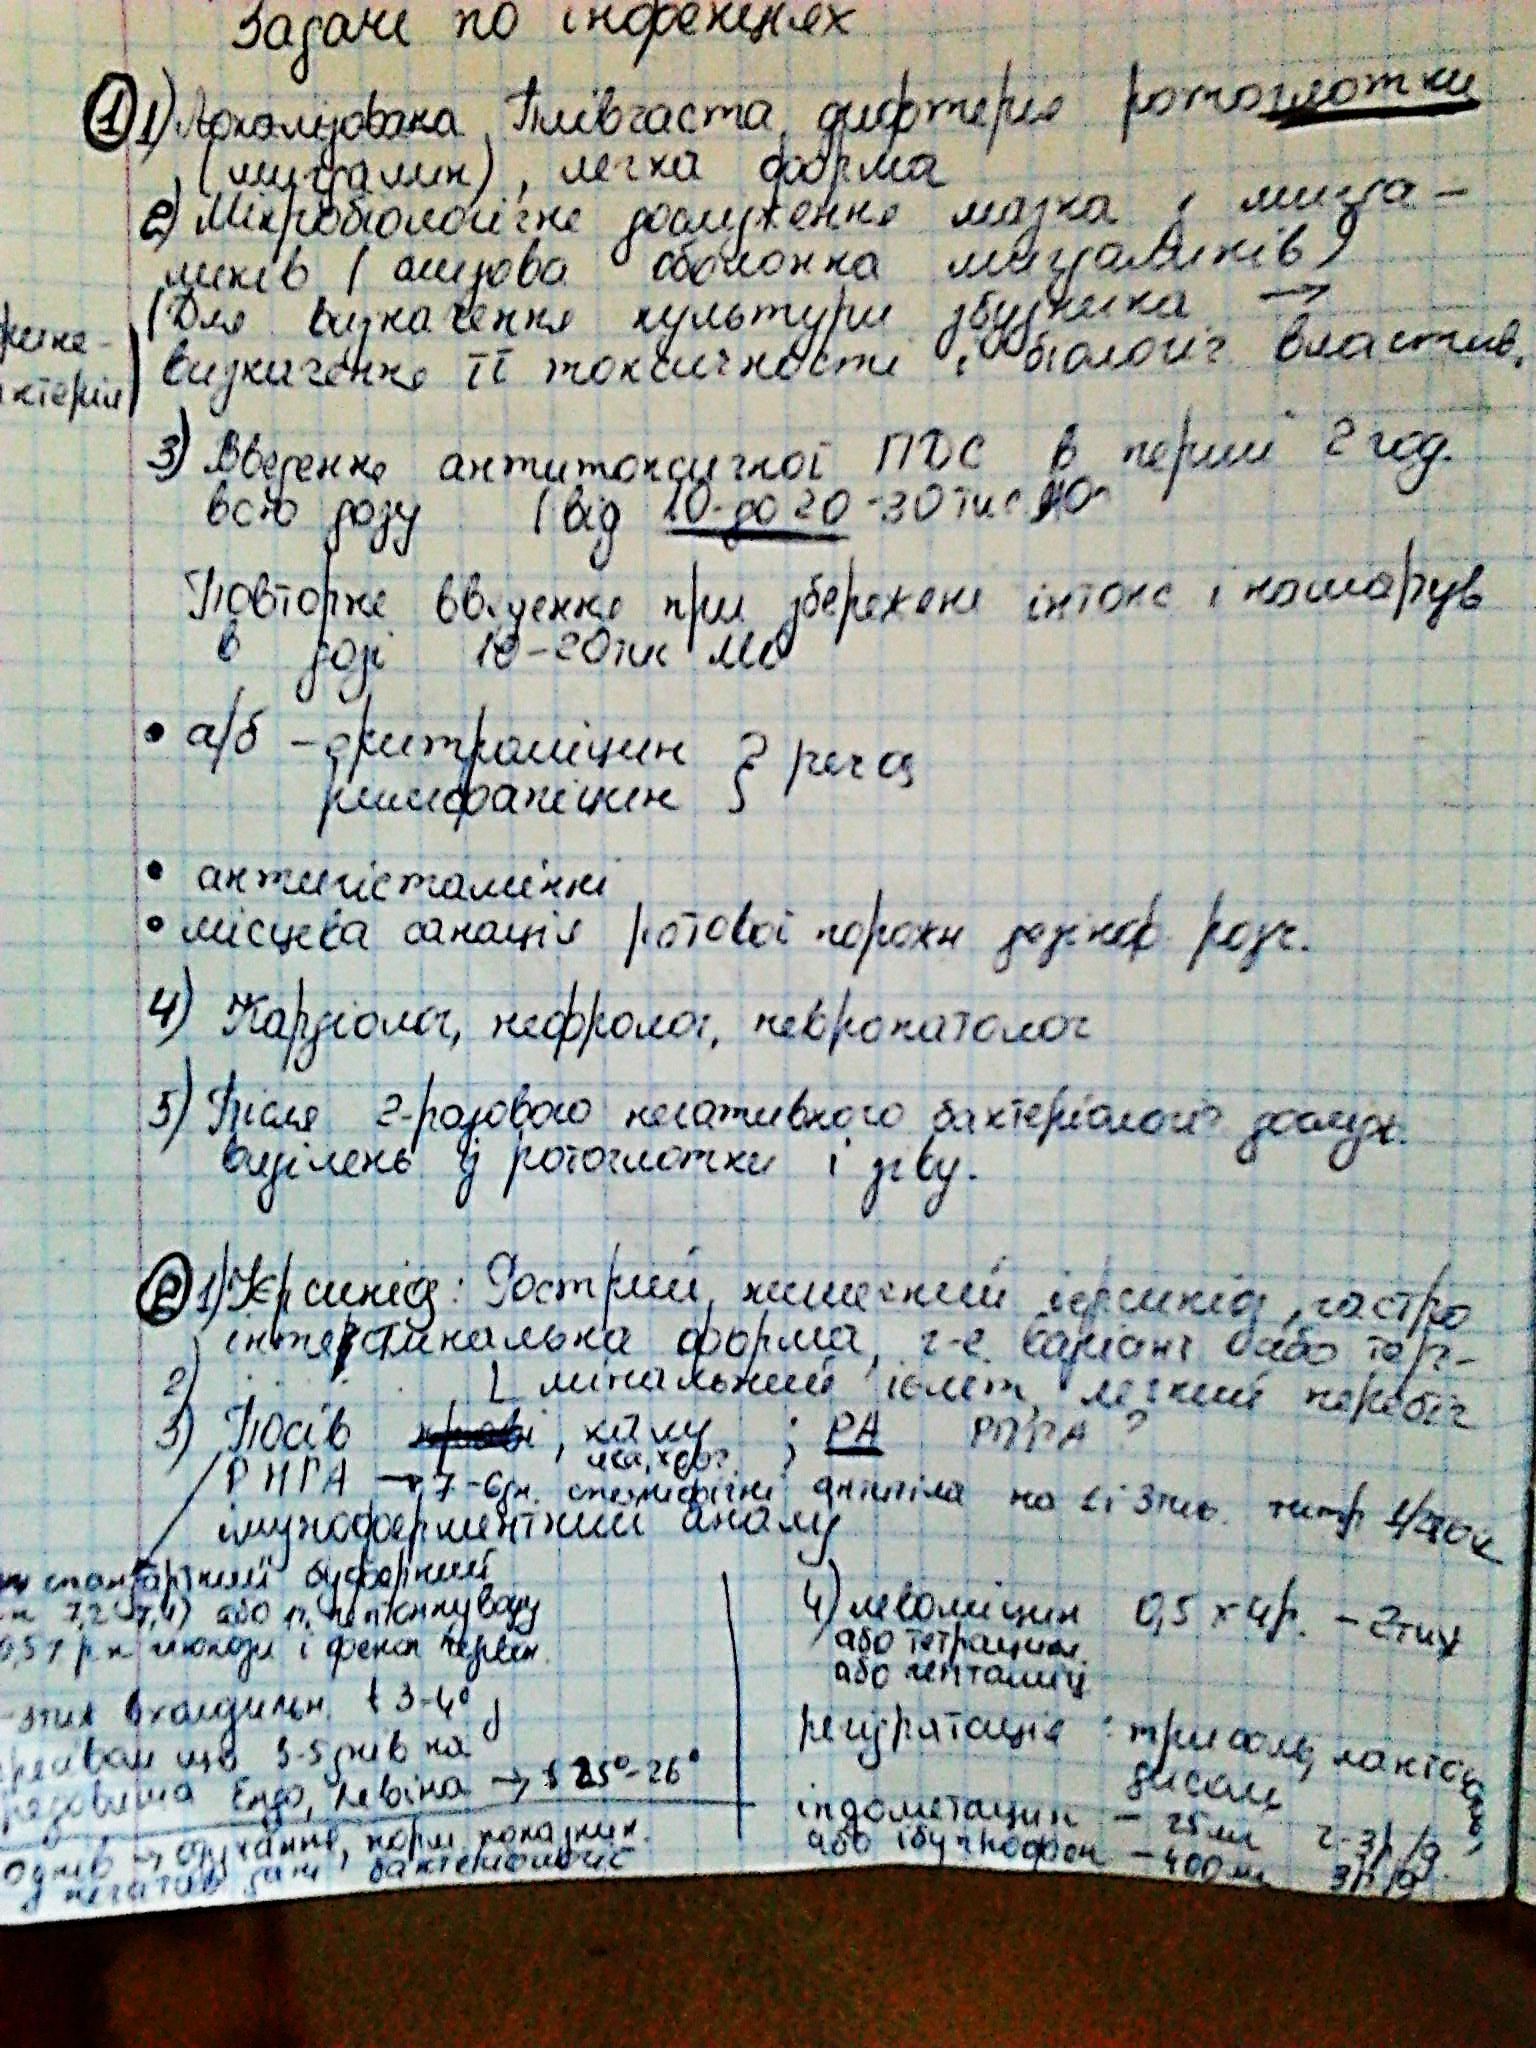 Задачі по інфекціях
① 1) Локалізована, Плівчаста, дифтерія ротоглотки
(мигдалин), легка форма
2) Мікробіологічне дослідження мазка і мигда-
ликів (слизова оболонка мигдаликів)
(Для визначення культури збудника →
визначення її токсичності і біологіч властив.
ктерія)
3) Введення антитоксичної ПДС в перші 2 год.
всю дозу (від 10-до 20-30 тис МО
Повторне введення при збережені інтокс і нашарув
в дозі 10-20тис МО
• а/б - еритроміцин
римфапіцин } peros
• антигістамінні
• місцева санація ротової порожн дезінф. розч.
4) Кардіолог, нефролог, невропатолог
5) Після 2-разового негативного бактеріологіч дослідж.
виділень із ротоглотки і зіву.
② 1) Ієрсиніоз: Гострий, кишечний ієрсиніоз, гастро
інтестинальна форма, г-е. варіант або тер-
2) мінальний ілеїт, легкий перебіг
3) Посів , калу ; РА РПГА ?
РНГА → 7-6дн. специфічні антитіла на 2 і 3 тиж. титр
імуноферментний аналіз
стандартний буферний
7,2-7,4) або 1% пептонну воду
0,5% р-н глюкози і фенол червон.
холодильн. t 3-4°
3-5 днів на
Ендо, Левіна → t 25°-26°
→ одужання, норм показник.
і негатив дані бактеріологіч
4) левоміцин 0,5 x 4р. - 2тиж
або тетрацикл.
або гентаміц
регідратація : трисоль, лактосоль,
дисоль
індометацин - 25мг 2-3р/д
або ібупрофен - 400мг 3р/д